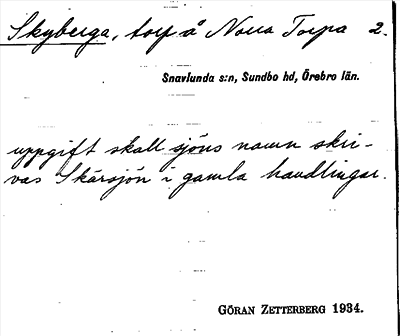 Skyberga, torp å Norra Torpa 2.
Snavlunda s:n, Sundbo hd, Örebro län.
uppgift skall sjöns namn skri-
vas Skärsjön i gamla handlingar.
GÖRAN ZETTERBERG 1934.